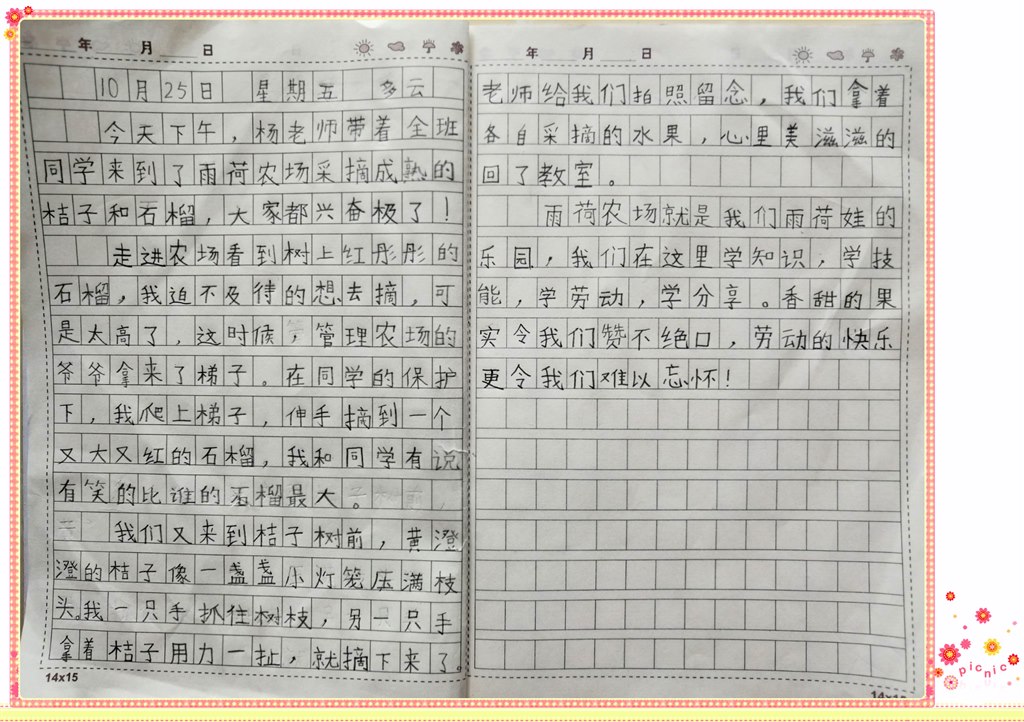 年 月 日
10月25日 星期五 多云
今天下午，杨老师带着全班
同学来到了雨荷农场采摘成熟的
桔子和石榴，大家都兴奋极了！
走进农场看到树上红彤彤的
石榴，我迫不及待的想去摘，可
是太高了，这时候，管理农场的
爷爷拿来了梯子。在同学的保护
下，我爬上梯子，伸手摘到一个
又大又红的石榴，我和同学有说
有笑的比谁的石榴最大。
我们又来到桔子树前，黄澄
澄的桔子像一盏盏小灯笼压满枝
头。我一只手抓住树枝，另一只手
拿着桔子用力一扯，就摘下来了。
14x15
年 月 日
老师给我们拍照留念，我们拿着
各自采摘的水果，心里美滋滋的
回了教室。
雨荷农场就是我们雨荷娃的
乐园，我们在这里学知识，学技
能，学劳动，学分享。香甜的果
实令我们赞不绝口，劳动的快乐
更令我们难以忘怀！
picnic